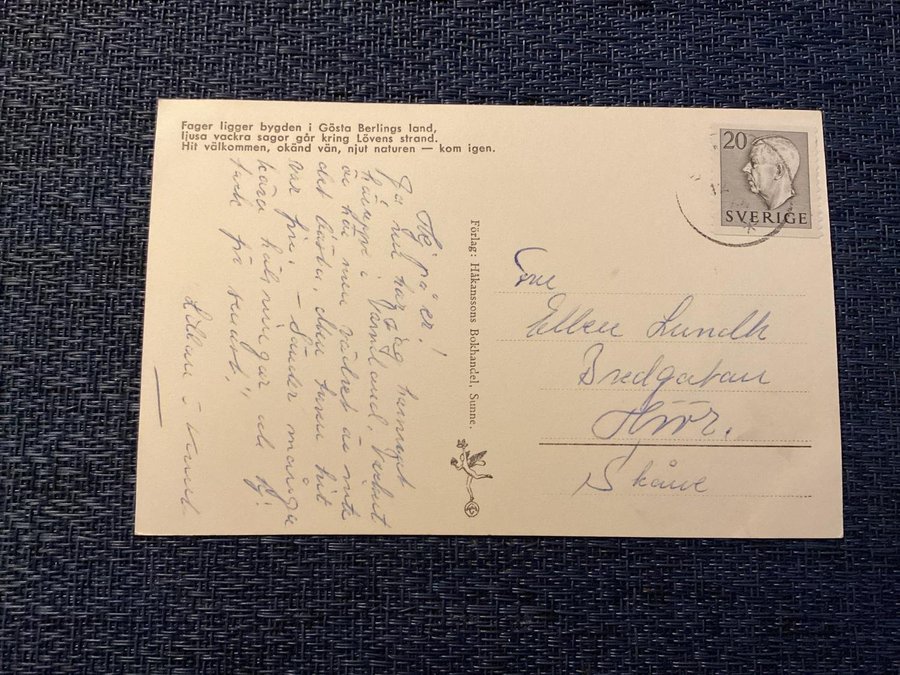 Fager ligger bygden i Gösta Berlings land,
ljusa vackra sagor går kring Lövens strand.
Hit välkommen, okänd vän, njut naturen — kom igen.
Hej på er!
Ja nu har jag hunnit
i Värmland,
är här, men vädret är inte
det bästa,
var fin. - Sänder många
kära hälsningar och Hej
tack för senast.
Förlag: Håkanssons Bokhandel, Sunne.
20
SVERIGE
Fru
Ellen Lundh
Bredgatan
Höör.
Skåne